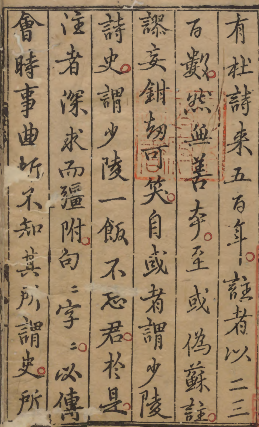 有杜詩来五百年註者以二三
百數然無善本至或偽蘇註
謬妄鉗刼可笑自或者謂少陵
詩史謂少陵一飯不忘君於是
注者深求而彊附句〻字〻以傳
會時事曲折不知其所謂史所